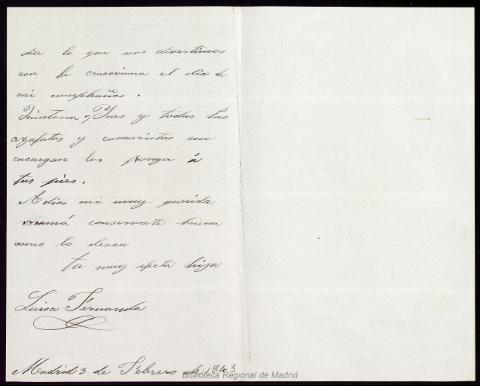 dia lo que nos divertimos
con la cracoviana el dia de
mi cumpleaños.
Quintana, Ynes y todas las
azafatas y camaristas me
encargan los ponga á
tus pies.
A dios mi muy querida
mamá conservate buena
como lo desea
tu muy afecta hija
Luisa Fernanda
Madrid 3 de Febrero de 1843
Biblioteca Regional de Madrid